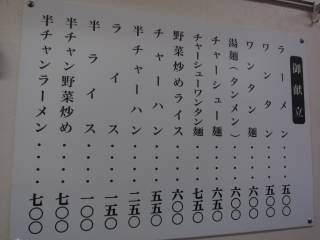 御献立
ラーメン・・・・五〇〇
ワンタン・・・・五〇〇
ワンタン麺・・・・六〇〇
湯麺（タンメン）・・・・六〇〇
チャーシュー麺・・・・六五〇
チャーシューワンタン麺・・・・七五〇
野菜炒めライス・・・・六〇〇
チャーハン・・・・五五〇
半チャーハン・・・・二五〇
ライス・・・・一五〇
半ライス・・・・一〇〇
半チャン野菜炒め・・・・七〇〇
半チャンラーメン・・・・七〇〇